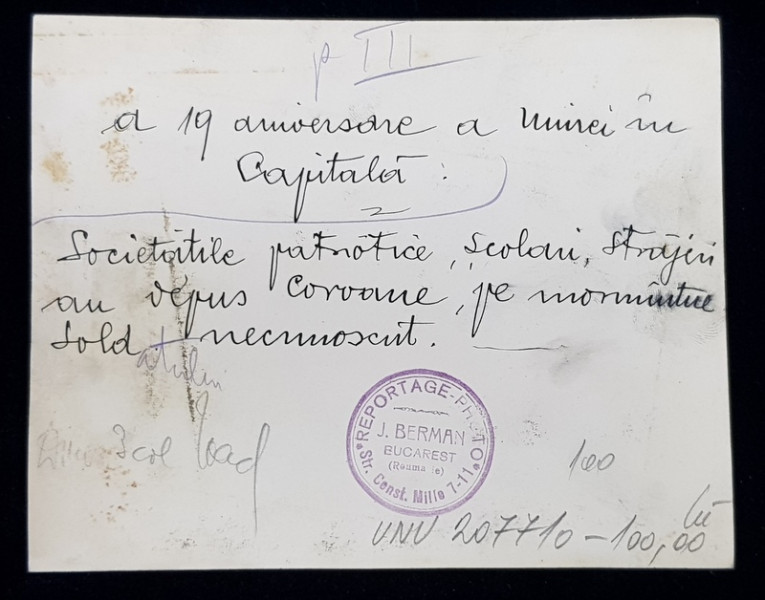 p III
a 19 aniversare a Unirei în
Capitală :
Societățile patriotice, școlari, străjeri
au depus coroane, pe mormîntue
Sold necunoscut.
atului
100
REPORTAGE-PHOTO
J. BERMAN
BUCAREST
(Rouma ie)
Str. Const. Mille 7-11
lei
UNU 207710-100,00